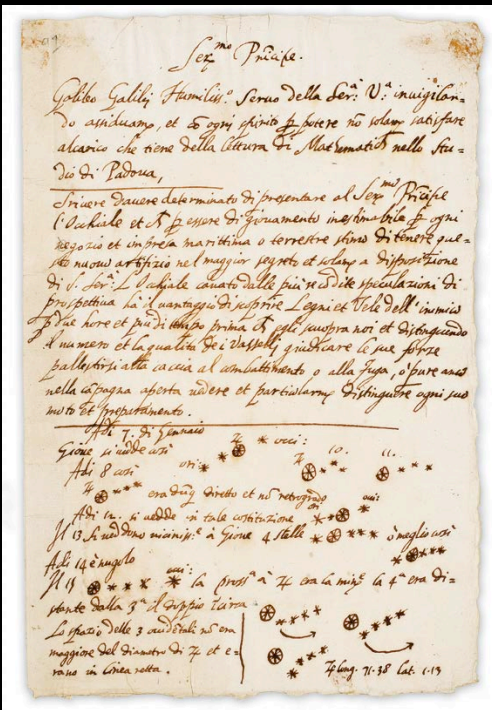 Ser.mo Prīcipe.
Galileo Galilej Humiliss.o Servo della Ser.a V.a invigilan=
do assiduam.e, et cō ogni spirito p potere nō solam. satisfare
alcarico che tiene della lettura di Mathematich nello stu=
dio di Padova,
Scrivere d'avere determinato di presentare al Ser.mo Prīcipe
l'Occhiale et p essere di giovamento inestimabile p ogni
negozio et impresa marittima o terrestre stimo di tenere que=
sto nuovo artifizio nel maggior segreto et solam. a disposizione
di S. Ser.a L'Occhiale cavato dalle più recōdite speculazioni di
prospettiva ha il vantaggio di scoprire Legni et Vele dell'inimico
p due hore et più di tempo prima egli scuopra noi et distinguendo
il numero et la qualità dei Vasselli giudicare le sue forze
pallestirsi alla caccia al combattimento o alla fuga, ò pure anco
nella cāpagna aperta vedere et particularm. distinguere ogni suo
moto et preparamento.
Adi 7. di Gennaio
Giove si vedde così occi:
Adi 8 così ori: 10. 11.
era dūq diretto et nō retrogrado
Adi 12. si vedde in tale costituzione ori occi:
Il 13 si veddono vicinissi.e à Giove 4 stelle ò meglio così
Adi 14 è nugolo
Il 15 occi: la pross.a à ♃ era la min.e la 4.a era di=
stante dalla 3.a il doppio Ĩcirca
Lo spazio delle 3 occidētali nō era
maggiore del diametro di ♃ et e=
rano in linea retta.
♃ long. 71.38 lat. 1.13